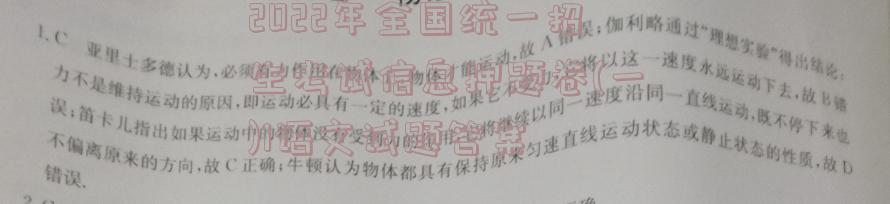 2022年全国统一招
生考试信息押题卷(一
)语文试题答案
1. C 亚里士多德认为,必须有力作用在物体上,物体才能运动,故 A 错误;伽利略通过“理想实验”得出结论:
力不是维持运动的原因,即运动必具有一定的速度,如果它不受力,它将以这一速度永远运动下去,故 B 错
误;笛卡儿指出如果运动中的物体没有受到力的作用,它将继续以同一速度沿同一直线运动,既不停下来也
不偏离原来的方向,故 C 正确;牛顿认为物体都具有保持原来匀速直线运动状态或静止状态的性质,故 D
错误.